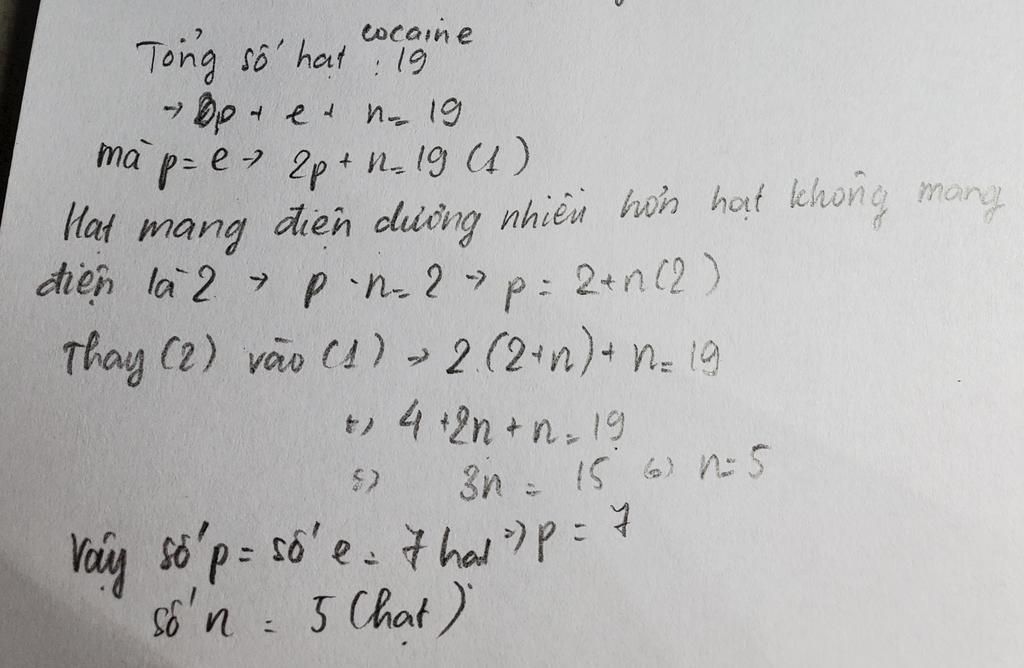 cocaine
Tổng số hạt : 19
→ p + e + n = 19
mà p = e → 2p + n = 19 (1)
Hạt mang điện dương nhiều hơn hạt không mang
điện là 2 → p - n = 2 → p = 2+n (2)
Thay (2) vào (1) → 2.(2+n) + n = 19
⇔ 4 + 2n + n = 19
⇔ 3n = 15 ⇔ n = 5
Vậy số p = số e = 7 hạt ⇒ p = 7
số n = 5 (hạt)